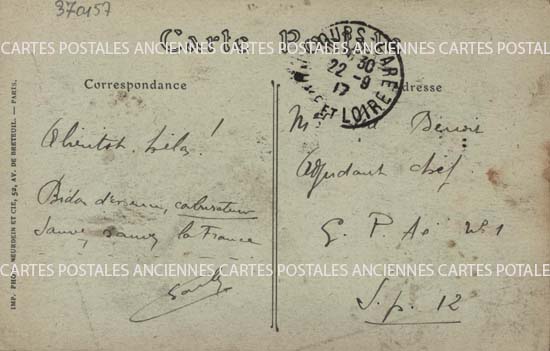 37057
Carte Postale
TOURS-GARE
30
22-9
17
ET LOIRE
Correspondance
Adresse
A bientôt, hélas !
Bidon d'essence, carburateur
Sauve, sauvez la France
M Benoit
Adjudant chef
G. P. Aé n°1
S. p. 12
IMP. PHOT. NEURDEIN ET CIE, 52, AV. DE BRETEUIL. — PARIS.
CARTES POSTALES ANCIENNES CARTES POSTALES ANCIENNES CARTES POSTALES ANCIENNES
CARTES POSTALES ANCIENNES CARTES POSTALES ANCIENNES CARTES POSTALES ANCIENNES